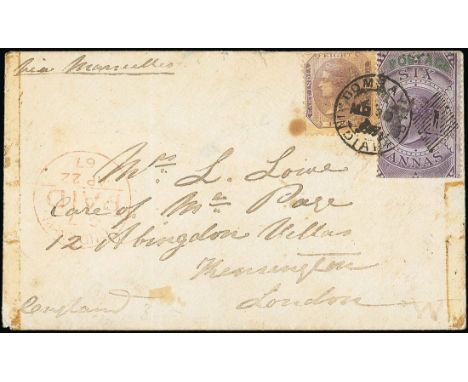 via Marseilles
EIGHT
POSTAGE
SIX
ANNAS
BOMBAY
67
PAID
Mrs. L. Lowe
Care of Mrs. Page
12 Abingdon Villas
Kensington
London
England